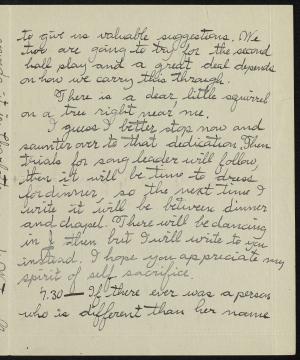 to give us valuable suggestons. We
two are going to try for the second
hall play and a great deal depends
on how we carry this through.
There is a dear, little squirrel
on a tree right near me.
I guess I better stop now and
saunter over to that dedication. Then
trials for song leader will follow,
then it will be time to dress
for dinner, so the next time I
write it will be between dinner
and chapel. There will be dancing
in J then but I will write to you
instead. I hope you appreciate my
spirit of self sacrifice.
7.30 — If there ever was a person
who is different than her name